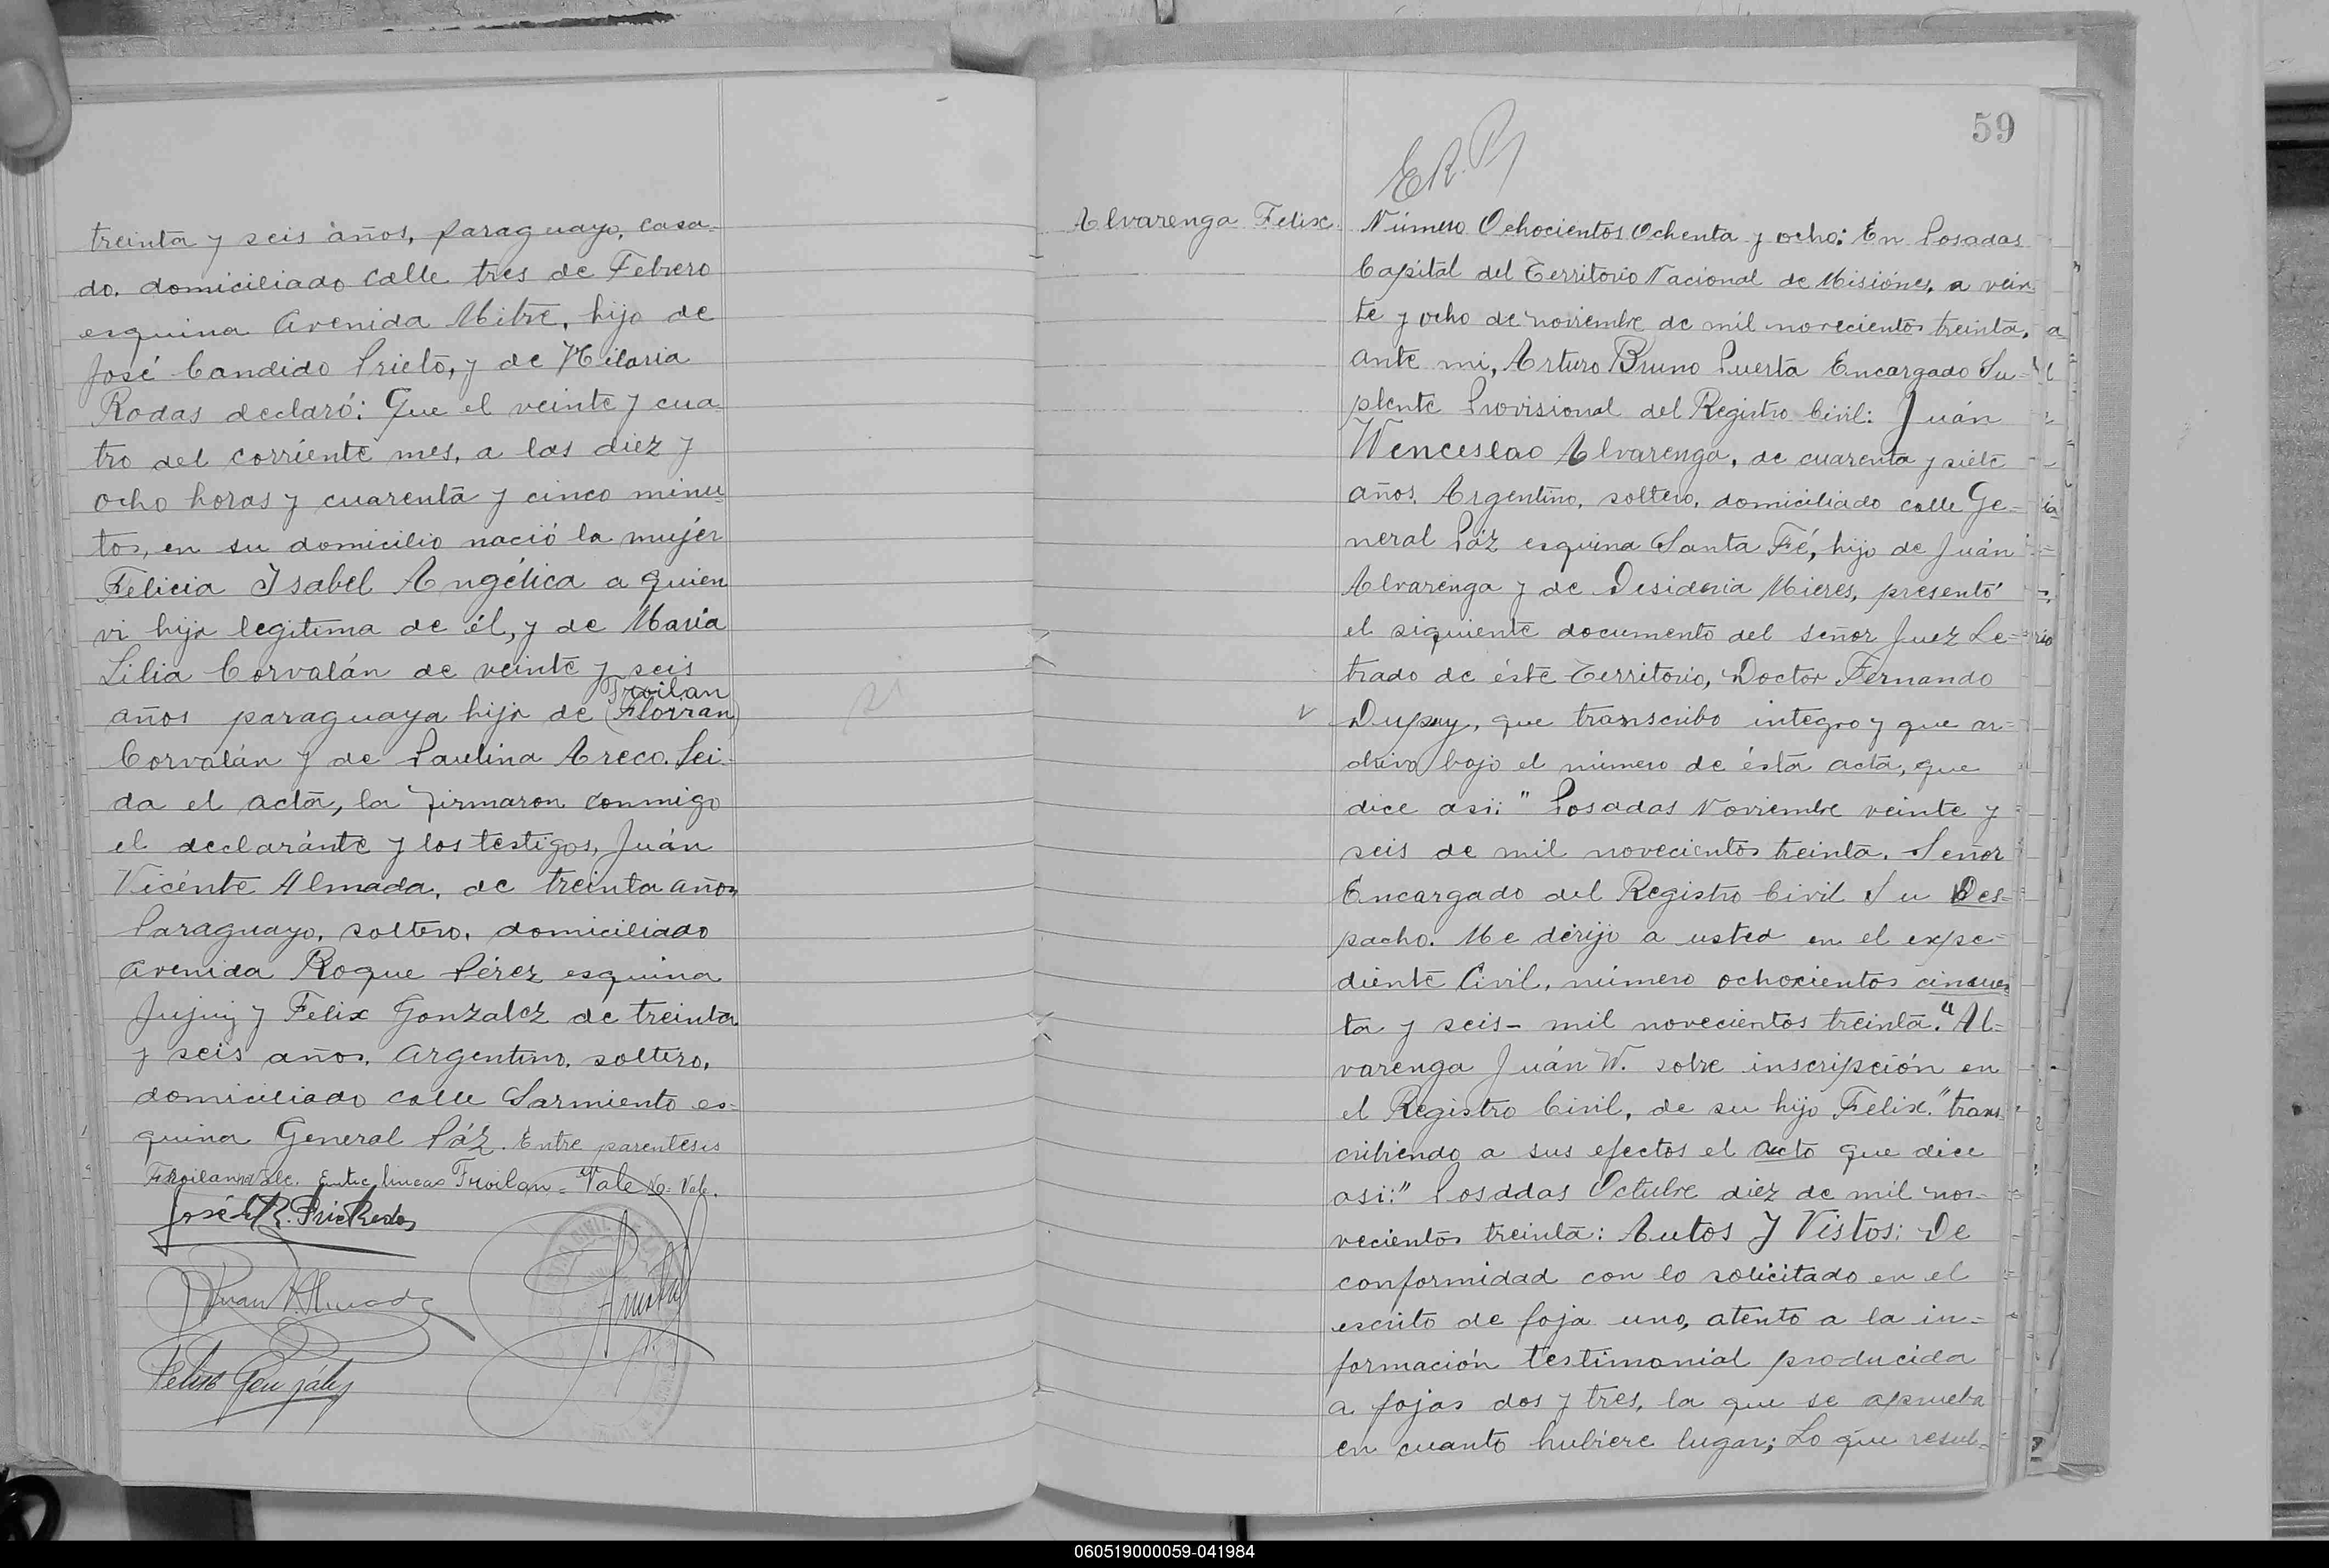 treinta y seis años, paraguayo, casa-
do, domiciliado calle tres de Febrero
esquina Avenida Mitre, hijo de
José Candido Prieto, y de Hilaria
Rodas declaró: Que el veinte y cua-
tro del corriente mes, a las diez y
ocho horas y cuarenta y cinco minu-
tos, en su domicilio nació la mujer
Felicia Isabel Angélica a quien
vi hija legitima de él, y de María
Lilia Corvalán de veinte y seis
Froilan
años paraguaya hija de (Florran)
Corvalán y de Paulina Areco. Lei-
da el acta, la firmaron conmigo
el declaránte y los testigos, Juán
Vicénte Almada, de treinta años
Paraguayo, soltero, domiciliado
avenida Roque Pérez esquina
Jujuy y Felix Gonzalez de treinta
y seis años, argentino, soltero,
domiciliado calle Sarmiento es-
quina General Páz. Entre parentesis
no vale. Entre lineas Froilan = Vale
Felix González
59
Alvarenga Felix.
Número Ochocientos Ochenta y ocho: En Posadas
Capital del Territorio Nacional de Misiónes, a vein-
te y ocho de noviembre de mil novecientos treinta,
ante mi, Arturo Bruno Puerta Encargado Su-
plente Provisional del Registro Civil: Juán
Wenceslao Alvarenga, de cuarenta y siete
años, Argentino, soltero, domiciliado calle Ge-
neral Páz esquina Santa Fé, hijo de Juán
Alvarenga y de Desideria Mieres, presentó
el siguiente documento del señor Juez Le-
trado de éste Territorio, Doctor Fernando
Dupuy, que transcribo integro y que ar-
chivo bajo el número de ésta acta, que
dice asi: " Posadas Noviembre veinte y
seis de mil novecientos treinta. Señor
Encargado del Registro Civil Su Des-
pacho. Me dirijo a usted en el expe-
diente Civil, número ochocientos cincuen
ta y seis - mil novecientos treinta. "Al-
varenga Juán W. sobre inscripción en
el Registro Civil, de su hijo Felix." trans
cribiendo a sus efectos el auto que dice
asi:" Posadas Octubre diez de mil no-
vecientos treinta: Autos Y Vistos: De
conformidad con lo solicitado en el
escrito de foja uno, atento a la in-
formación testimonial producida
a fojas dos y tres, la que se aprueba
en cuanto hubiere lugar; Lo que resul-
060519000059-041984